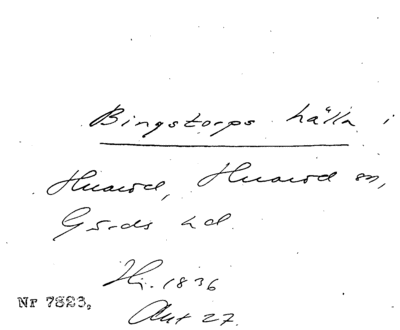 Bingstorps hälla i
Hvarvd, Hvarvd sn,
Gärds hd.
Hj. 1836
Akt 27.
Nr 7823,